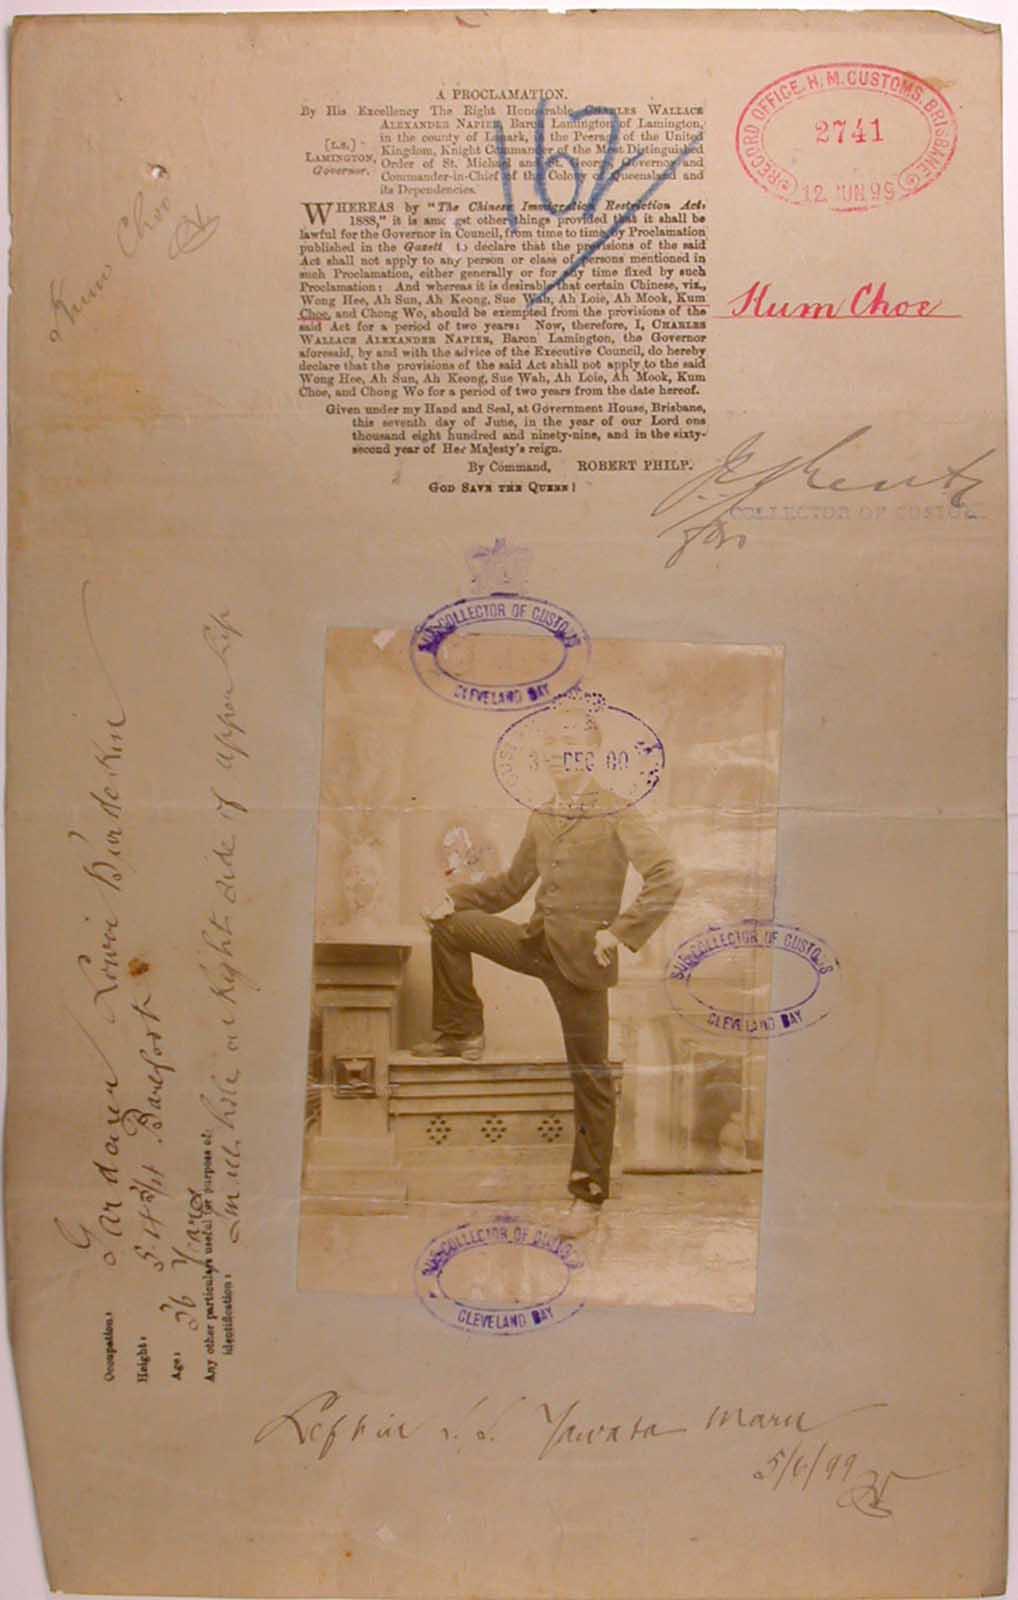 A PROCLAMATION.
By His Excellency The Right Honourable CHARLES WALLACE
ALEXANDER NAPIER, Baron Lamington of Lamington,
in the county of Lanark, in the Peerage of the United
Kingdom, Knight Commander of the Most Distinguished
Order of St. Michael and St. George, Governor and
Commander-in-Chief of the Colony of Queensland and
its Dependencies.
[L.S.]
LAMINGTON,
Governor.
WHEREAS by "The Chinese Immigration Restriction Act,
1888," it is amongst other things provided that it shall be
lawful for the Governor in Council, from time to time, by Proclamation
published in the Gazette to declare that the provisions of the said
Act shall not apply to any person or class of persons mentioned in
such Proclamation, either generally or for any time fixed by such
Proclamation: And whereas it is desirable that certain Chinese, viz.,
Wong Hee, Ah Sun, Ah Keong, Sue Wah, Ah Loie, Ah Mook, Kum
Choe, and Chong Wo, should be exempted from the provisions of the
said Act for a period of two years: Now, therefore, I, CHARLES
WALLACE ALEXANDER NAPIER, Baron Lamington, the Governor
aforesaid, by and with the advice of the Executive Council, do hereby
declare that the provisions of the said Act shall not apply to the said
Wong Hee, Ah Sun, Ah Keong, Sue Wah, Ah Loie, Ah Mook, Kum
Choe, and Chong Wo for a period of two years from the date hereof.
Given under my Hand and Seal, at Government House, Brisbane,
this seventh day of June, in the year of our Lord one
thousand eight hundred and ninety-nine, and in the sixty-
second year of Her Majesty's reign.
By Command, ROBERT PHILP.
GOD SAVE THE QUEEN!
162
RECORD OFFICE. H. M. CUSTOMS. BRISBANE
2741
12 JUN 99
Kum Choe
COLLECTOR OF CUSTOMS
for
Choe
SUB-COLLECTOR OF CUSTOMS
CLEVELAND BAY
3 - DEC 00
SUB-COLLECTOR OF CUSTOMS
CLEVELAND BAY
SUB-COLLECTOR OF CUSTOMS
CLEVELAND BAY
Occupation: Gardener Lower Burdekin
Height: Barefoot
Age: 26 Years
Any other particulars useful for purpose of
identification: Small hole on Right side of upper Lip
Left in S.S. Yawata Maru
5/6/99